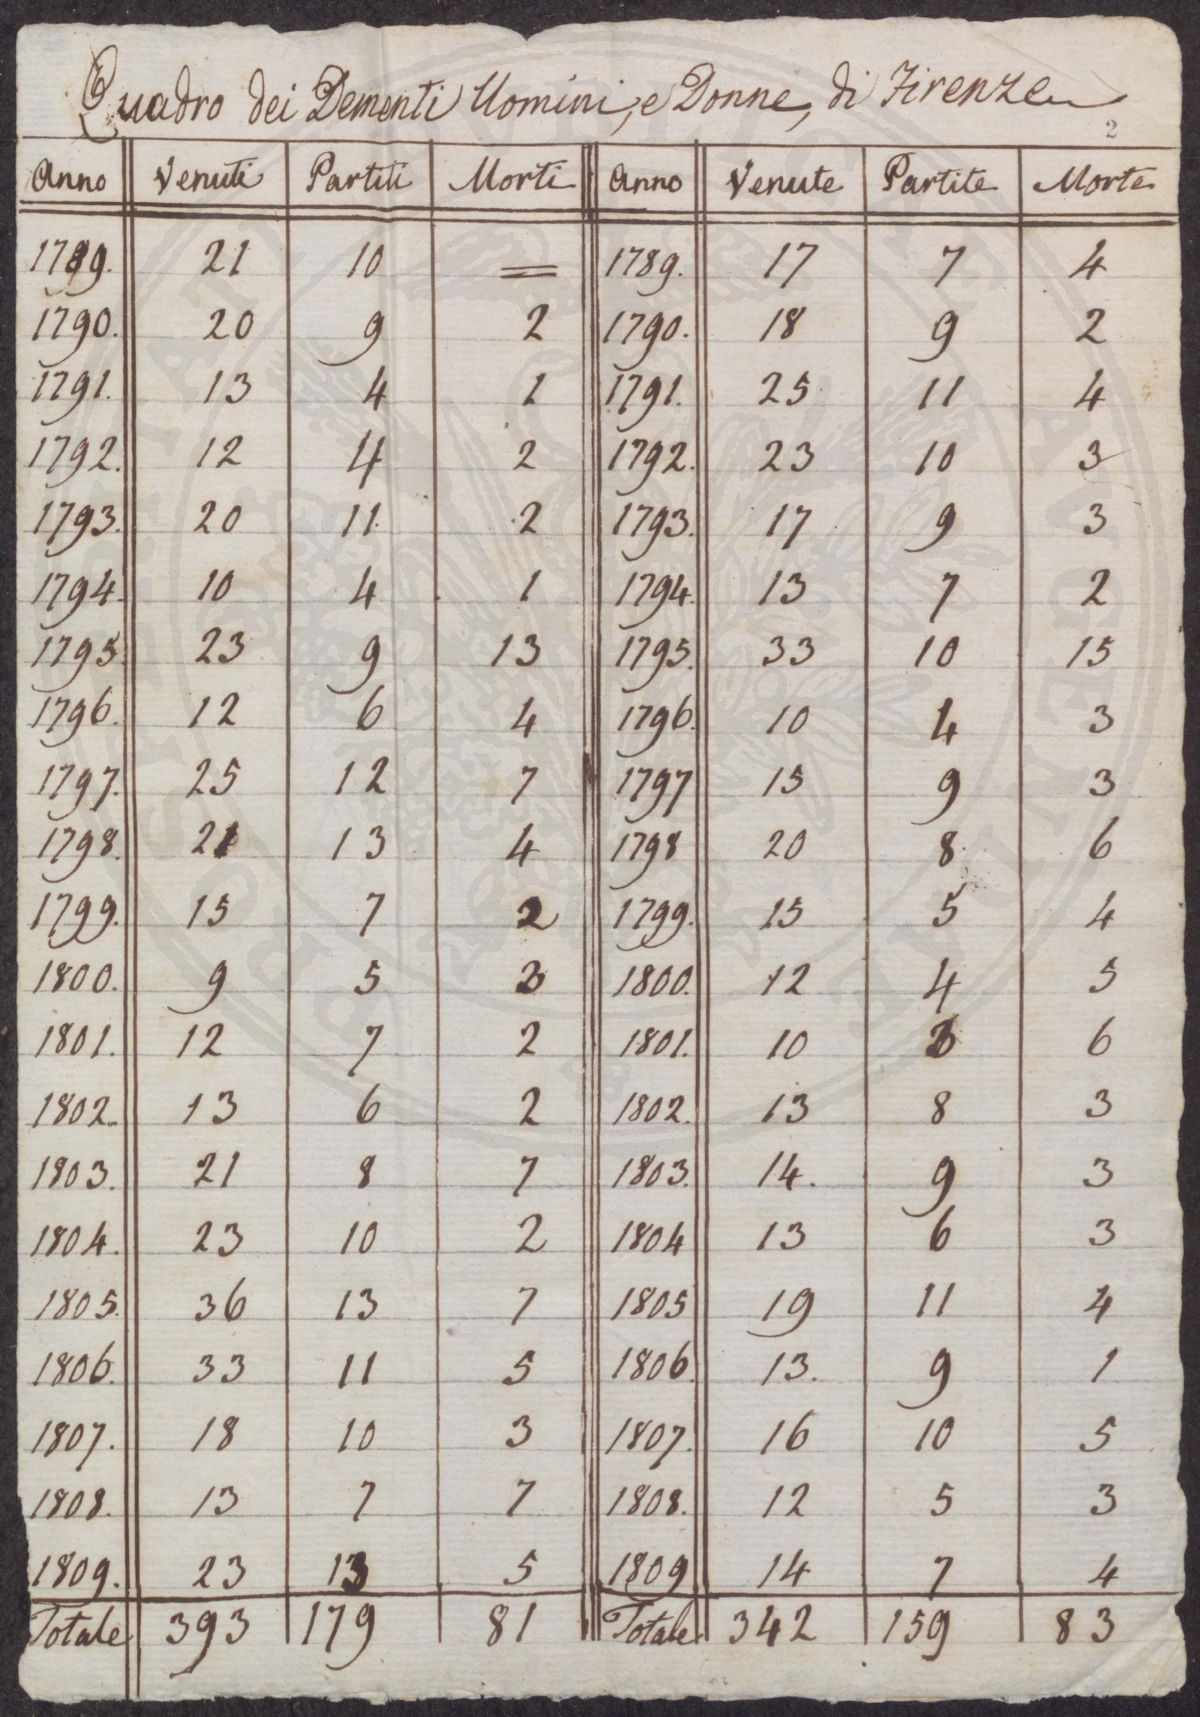 Quadro dei Dementi Uomini, e Donne, di Firenze
2
Anno Venuti Partiti Morti Anno Venute Partite Morte
1789. 21 10 = 1789. 17 7 4
1790. 20 9 2 1790. 18 9 2
1791. 13 4 1 1791. 25 11 4
1792. 12 4 2 1792. 23 10 3
1793. 20 11 2 1793. 17 9 3
1794. 10 4 1 1794. 13 7 2
1795. 23 9 13 1795. 33 10 15
1796. 12 6 4 1796. 10 4 3
1797. 25 12 7 1797 15 9 3
1798. 21 13 4 1798 20 8 6
1799. 15 7 2 1799. 15 5 4
1800. 9 5 3 1800. 12 4 5
1801. 12 7 2 1801. 10 6
1802. 13 6 2 1802. 13 8 3
1803. 21 8 7 1803. 14. 9 3
1804. 23 10 2 1804 13 6 3
1805. 36 13 7 1805 19 11 4
1806. 33 11 5 1806 13. 9 1
1807. 18 10 3 1807. 16 10 5
1808. 13 7 7 1808. 12 5 3
1809. 23 13 5 1809 14 7 4
Totale 393 179 81 Totale 342 159 83